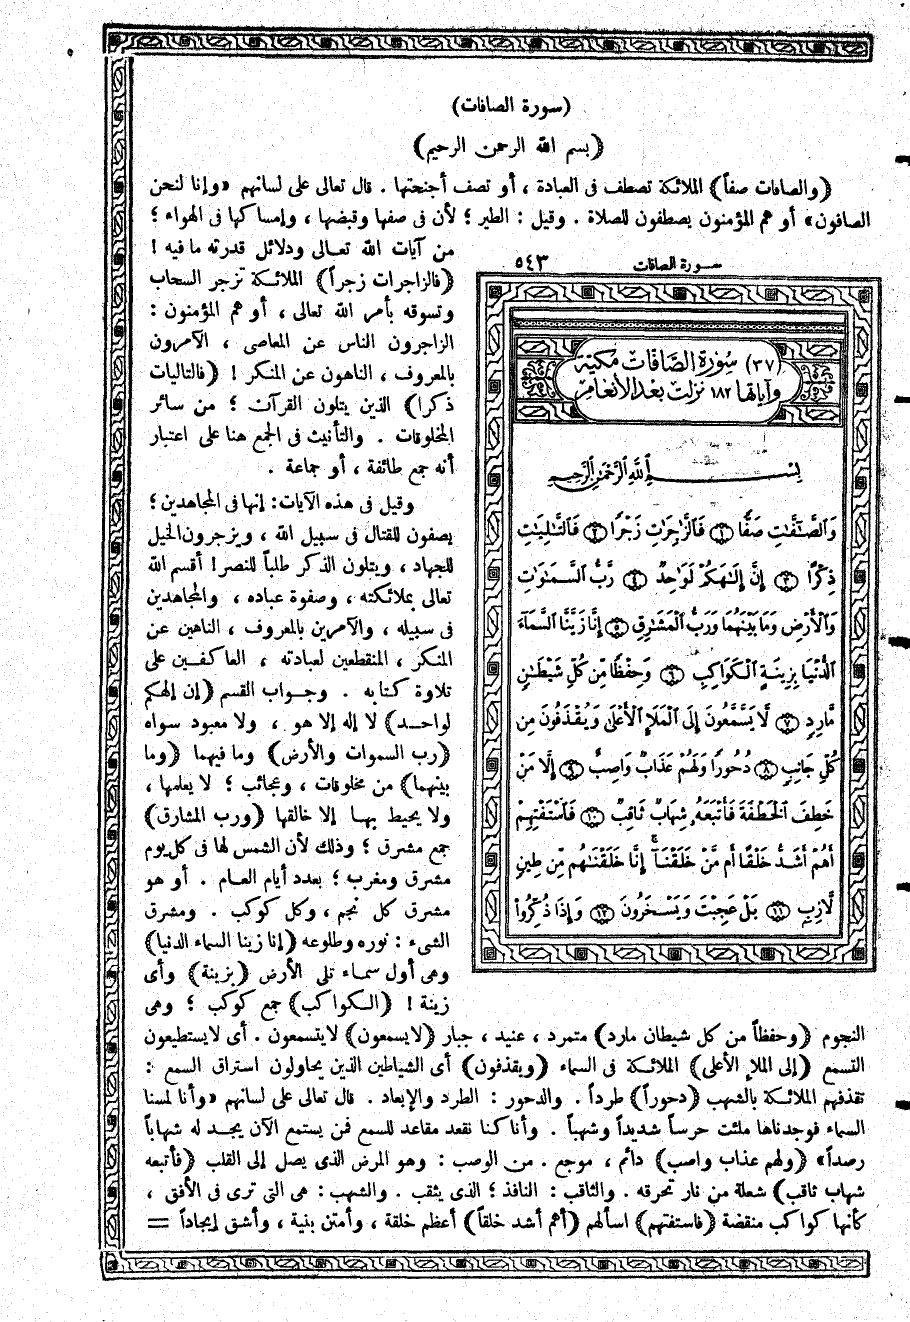 (سورة الصافات)
(بسم الله الرحمن الرحيم)
(والصافات صفاً) الملائكة تصطف فى العبادة ، أو تصف أجنحتها . قال تعالى على لسانهم «وإنا لنحن
الصافون» أو هم المؤمنون يصطفون للصلاة . وقيل : الطير ؛ لأن فى صفها وقبضها ، وإمساكها فى الهواء ؛
من آيات الله تعالى ودلائل قدرته ما فيه !
(فالزاجرات زجراً) الملائكة تزجر السحاب
وتسوقه بأمر الله تعالى ، أو هم المؤمنون :
الزاجرون الناس عن المعاصى ، الآمرون
بالمعروف ، الناهون عن المنكر ! (فالتاليات
ذكرا) الذين يتلون القرآن ؛ من سائر
المخلوقات . والتأنيث فى الجمع هنا على اعتبار
أنه جمع طائفة ، أو جماعة .
وقيل فى هذه الآيات : إنها فى المجاهدين ؛
يصفون للقتال فى سبيل الله ، ويزجرون الخيل
للجهاد ، ويتلون الذكر طلباً للنصر ! أقسم الله
تعالى بملائكته ، وصفوة عباده ، والمجاهدين
فى سبيله ، والآمرين بالمعروف ، الناهين عن
المنكر ، المنقطعين لعبادته ، العاكفين على
تلاوة كتابه . وجواب القسم (إن إلهكم
لواحد) لا إله إلا هو ، ولا معبود سواه
(رب السموات والأرض) وما فيهما (وما
بينهما) من مخلوقات ، وعجائب ؛ لا يعلمها ،
ولا يحيط بها إلا خالقها (ورب المشارق)
جمع مشرق ؛ وذلك لأن الشمس لها فى كل يوم
مشرق ومغرب ؛ بعدد أيام العام . أو هو
مشرق كل نجم ، وكل كوكب . ومشرق
الشىء : نوره وطلوعه (إنا زينا السماء الدنيا)
وهى أول سماء تلى الأرض (بزينة) وأى
زينة ! (الكواكب) جمع كوكب ؛ وهى
سورة الصافات ٥٤٣
(٣٧) سُورَة الصَّافَات مَكيَّة
وآياتها ١٨٢ نزلت بعد الأنعام
بِسْمِ اللَّهِ الرَّحْمَٰنِ الرَّحِيمِ
وَالصَّٰٓفَّٰتِ صَفًّا ﴿١﴾ فَالزَّٰجِرَٰتِ زَجْرًا ﴿٢﴾ فَالتَّٰلِيَٰتِ
ذِكْرًا ﴿٣﴾ إِنَّ إِلَٰهَكُمْ لَوَٰحِدٌ ﴿٤﴾ رَّبُّ السَّمَٰوَٰتِ
وَالْأَرْضِ وَمَا بَيْنَهُمَا وَرَبُّ الْمَشَٰرِقِ ﴿٥﴾ إِنَّا زَيَّنَّا السَّمَآءَ
الدُّنْيَا بِزِينَةٍ الْكَوَاكِبِ ﴿٦﴾ وَحِفْظًا مِّن كُلِّ شَيْطَٰنٍ
مَّارِدٍ ﴿٧﴾ لَّا يَسَّمَّعُونَ إِلَى الْمَلَإِ الْأَعْلَىٰ وَيُقْذَفُونَ مِن
كُلِّ جَانِبٍ ﴿٨﴾ دُحُورًا وَلَهُمْ عَذَابٌ وَاصِبٌ ﴿٩﴾ إِلَّا مَنْ
خَطِفَ الْخَطْفَةَ فَأَتْبَعَهُۥ شِهَابٌ ثَاقِبٌ ﴿١٠﴾ فَاسْتَفْتِهِمْ
أَهُمْ أَشَدُّ خَلْقًا أَم مَّنْ خَلَقْنَآ ۚ إِنَّا خَلَقْنَٰهُم مِّن طِينٍ
لَّازِبٍ ﴿١١﴾ بَلْ عَجِبْتَ وَيَسْخَرُونَ ﴿١٢﴾ وَإِذَا ذُكِّرُوا۟
النجوم (وحفظاً من كل شيطان مارد) متمرد ، عنيد ، جبار (لا يسمعون) لا يتسمعون . أى لا يستطيعون
التسمع (إلى الملإ الأعلى) الملائكة فى السماء (ويقذفون) أى الشياطين الذين يحاولون استراق السمع :
تقذفهم الملائكة بالشهب (دحوراً) طرداً . والدحور : الطرد والإبعاد . قال تعالى على لسانهم «وأنا لمسنا
السماء فوجدناها ملئت حرساً شديداً وشهباً . وأنا كنا نقعد مقاعد للسمع فمن يستمع الآن يجد له شهاباً
رصداً» (ولهم عذاب واصب) دائم ، موجع . من الوصب : وهو المرض الذى يصل إلى القلب (فأتبعه
شهاب ثاقب) شعلة من نار تحرقه . والثاقب : النافذ ؛ الذى يثقب . والشهب : هى التى ترى فى الأفق ،
كأنها كواكب منقضة (فاستفتهم) اسألهم (أهم أشد خلقاً) أعظم خلقة ، وأمتن بنية ، وأشق إيجاداً =